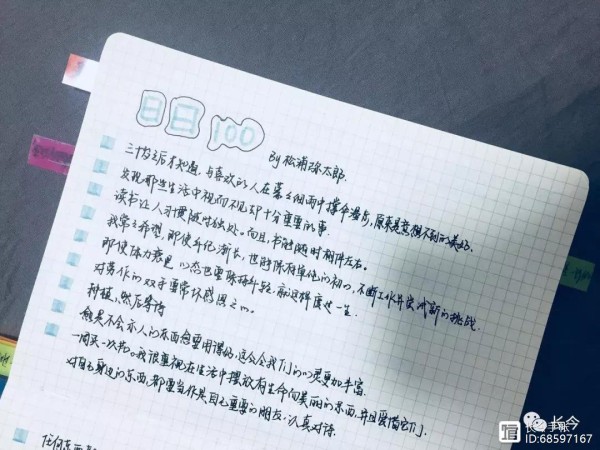 日日100
By 松浦弥太郎.
三十岁之后才知道,与喜欢的人在蒙蒙细雨中撑伞漫步,原来是意想不到的美好.
发现那些生活中视而不见却十分重要的事.
读书让人习惯随时独处.而且,书能随时相伴左右.
我常常希望,即使年纪渐长,也能保有单纯的初心,不断工作并尝试新的挑战.
即使体力衰退 心态也要保持年轻,就这样度过一生.
对劳作的双手要常怀感恩之心.
种植,然后等待
愈是不会示人的东西愈要用得好,这会令我们的心灵更加丰富.
一周买一次花.我很重视在生活中摆放有生命的美丽的东西,并且爱惜它们.
对自己身边的东西,都要当作是自己重要的朋友,认真对待.
任何东西都
长今
长今手账
ID:68597167